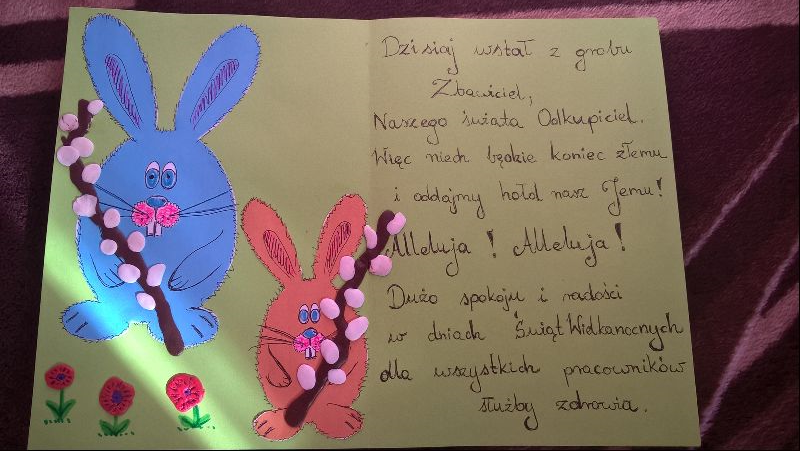 Dzisiaj wstał z grobu
Zbawiciel,
Naszego świata Odkupiciel.
Więc niech będzie koniec złemu
i oddajmy hołd nasz Jemu!
Alleluja! Alleluja!
Dużo spokoju i radości
w dniach Świąt Wielkanocnych
dla wszystkich pracowników
służby zdrowia.